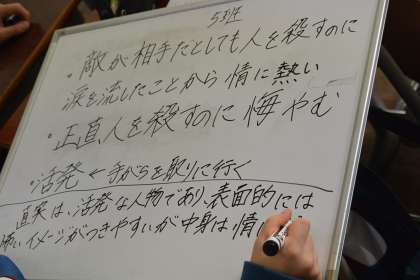 5班
・敵が相手だとしても人を殺すのに
涙を流したことから情に熱い
・正直人を殺すのに悔やむ
・活発 ← 手がらを取りに行く
直実は、活発な人物であり、表面的には
怖いイメージがつきやすいが中身は、情に